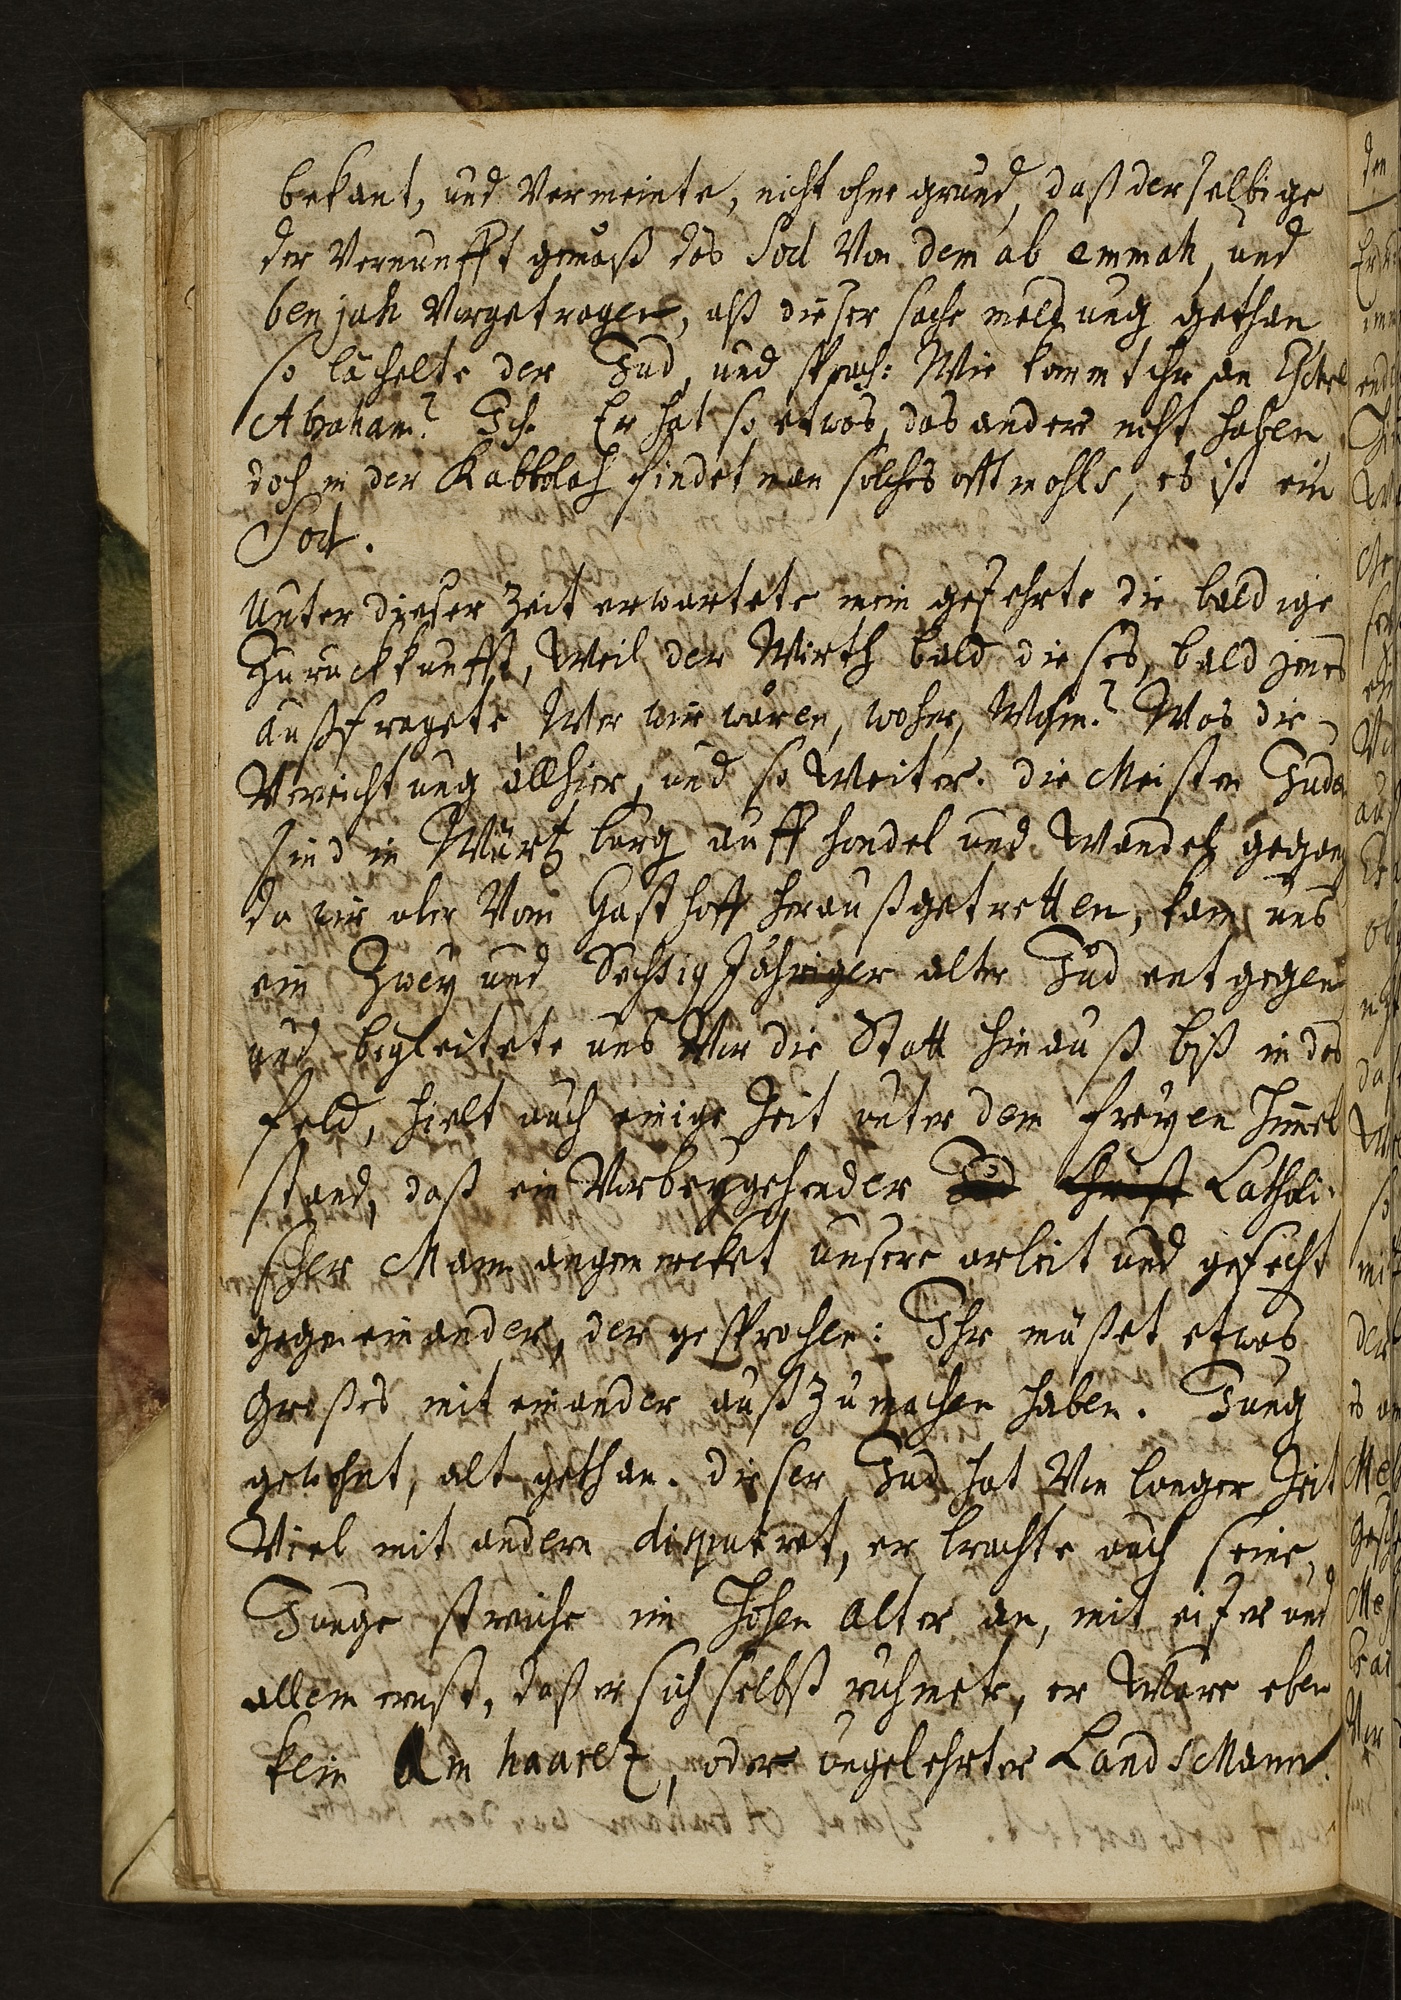 bekant, und Vermeinte, nicht ohne grund, daß derselbige
der Vernunfft gemäß das Sod Von dem ab emmah, und
ben jah Vorgetragen, alß dieser sache meldung gethan
so lächelte der Jud, und sprach: Wie kommt ihr an Eschel
Abraham? Ich. Er hat so etwas, das andere nicht haben,
doch in der Kabbalah findet man solches offtmahls, es ist ein
Sod.
Unter dieser Zeit erwartete mein gefehrte die baldige
Zuruckkunfft, Weil der Wirth bald dieses, bald jenes
außfragete, Wer wir wären, woher, Wohin? Was die
Verrichtung allhier, und so Weiter. die Meisten Juden
sind in Würtzburg auff handel und Wandel gegang
da wir aber Vom Gasthoff heraußgetretten, kam uns
ein Zwey und Sechtzig Jähriger alter Jud entgegen
und begleitete uns Vor die Statt hinauß biß in das
feld, hielt auch einige Zeit unter dem freyen Himel
stand, daß ein Vorbeygehender Jud Christ Catholi-
scher Mann angemercket unsere arbeit und gefecht
gegen einander, der gesprochen: Ihr müßet etwas
Großes mit einander außzumachen haben. Jung
gewohnt, alt gethan. dieser Jud hat Von langer Zeit
Viel mit andern disputiret, er brachte auch seine
Junge streiche im Hohen Alter an, mit eifer und
allem ernst, daß er sich selbst ruhmete, er Wäre eben
kein Am haarez, oder ungelehrter LandsMann.